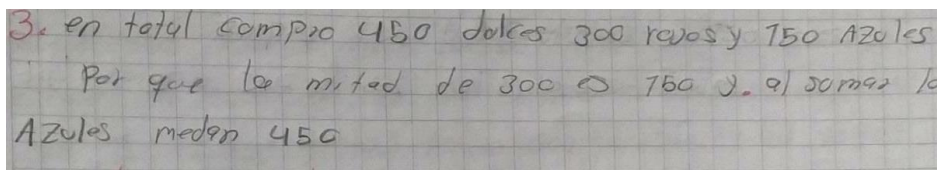 3. en total compro 450 dolces 300 rojos y 150 Azules
Por que la mitad de 300 es 150 y. al sumar lo
Azules medan 450